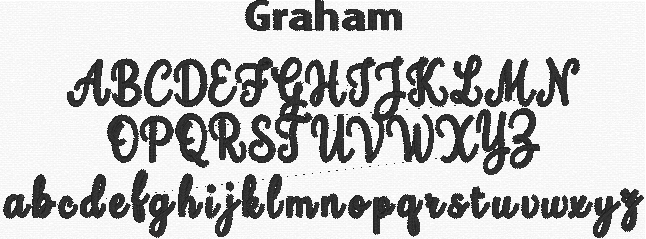 Graham
ABCDEFGHIJKLMN
OPQRSTUVWXYZ
abcdefghijklmnopqrstuvwxyz